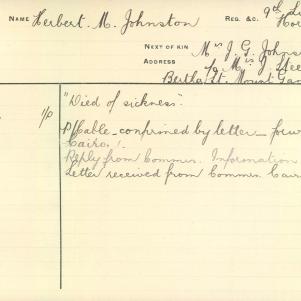 NAME Herbert. M. Johnston REG. &C. 9th Li
Hor
NEXT OF KIN Mrs J. G. Johns
ADDRESS c/o Mrs J. Stee
Bertha St. Mount Ga
1/0 "Died of sickness".
Cable confirmed by letter forw
Cairo.
Reply from Commr. Information
Letter received from Commr. Cair